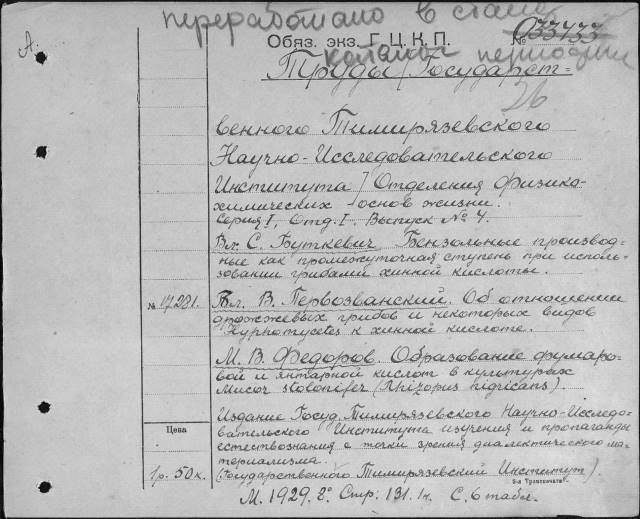 переработано в
А.
Обяз. экз. Г. Ц. К. П. № 033433
Труды [Государст-
26
венного Тимирязевского
Научно-Исследовательского
Института] Отделения физико-
химических основ жизни.
Серия I, Отд. I. Выпуск № 4.
Вл. С. Буткевич. Бензольные производ-
ные как промежуточная ступень при исполь-
зовании грибами хинной кислоты.
№ 17281. Вл. В. Первозванский. Об отношении
дрожжевых грибов и некоторых видов
Hyphomycetes к хинной кислоте.
М. В. Федоров. Образование фумаро-
вой и янтарной кислот в культурах
Mucor stolonifer (Rhizopus nigricans).
Издание Госуд. Тимирязевского Научно-Исследо-
Цена
вательского Института изучения и пропаганды
естествознания с точки зрения диалектического ма-
териализма.
1 р. 50 к. (Государственного Тимирязевский Институт).
М. 1929 г. Стр. 131. 1 н. С. 6 табл.